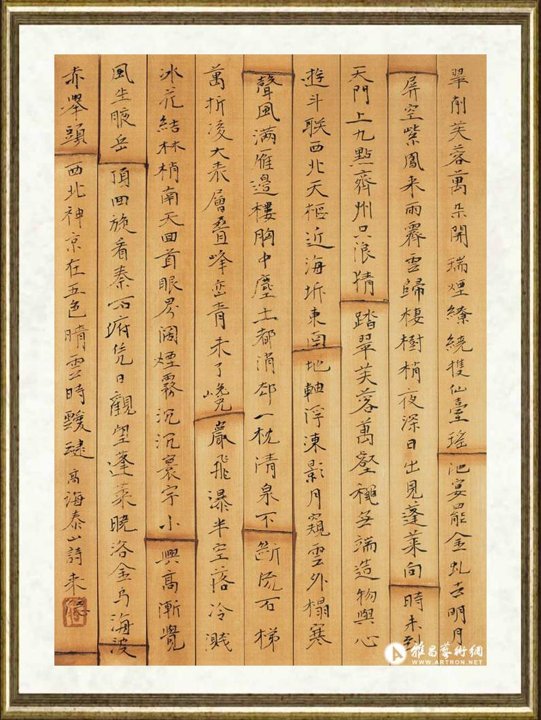 翠削芙蓉萬朵開瑞煙繚繞護仙臺瑤池宴罷金虬去明月
屏空紫鳳來雨霽雲歸棲樹梢夜深日出見蓬萊向時未到
天門上九點齊州只浪猜踏翠芙蓉萬壑穠無端造物與心
遊斗聯西北天樞近海坼東南地軸浮凍影月窺雲外榻寒
聲風滿雁邊樓胸中塵土都消卻一枕清泉不斷流石梯
萬折凌大表層疊峰巒青未了巉巖飛瀑半空落冷濺
冰花結林梢南天回首眼界闊煙霧沉沉寰宇小興高漸覺
風生腋岳頂回旋看秦
府凭日觀望蓬萊曉浴金烏海波
赤舉頭西北神京在五色晴雲時靉靆
高海泰山詩
雅昌藝術網
WWW.ARTRON.NET